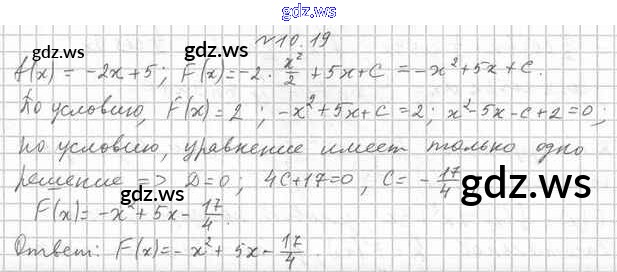 gdz.ws
№10.19
gdz.ws gdz.ws
f(x) = -2x+5; F(x)=-2·x²/2+5x+C=-x²+5x+C.
По условию, F(x)=2; -x²+5x+C=2; x²-5x-c+2=0;
по условию, уравнение имеет только одно
решение => D=0; 4C+17=0, C=-17/4
gdz.ws
F(x)=-x²+5x-17/4.
Ответ: F(x)=-x²+5x-17/4.
gdz.ws gdz.ws